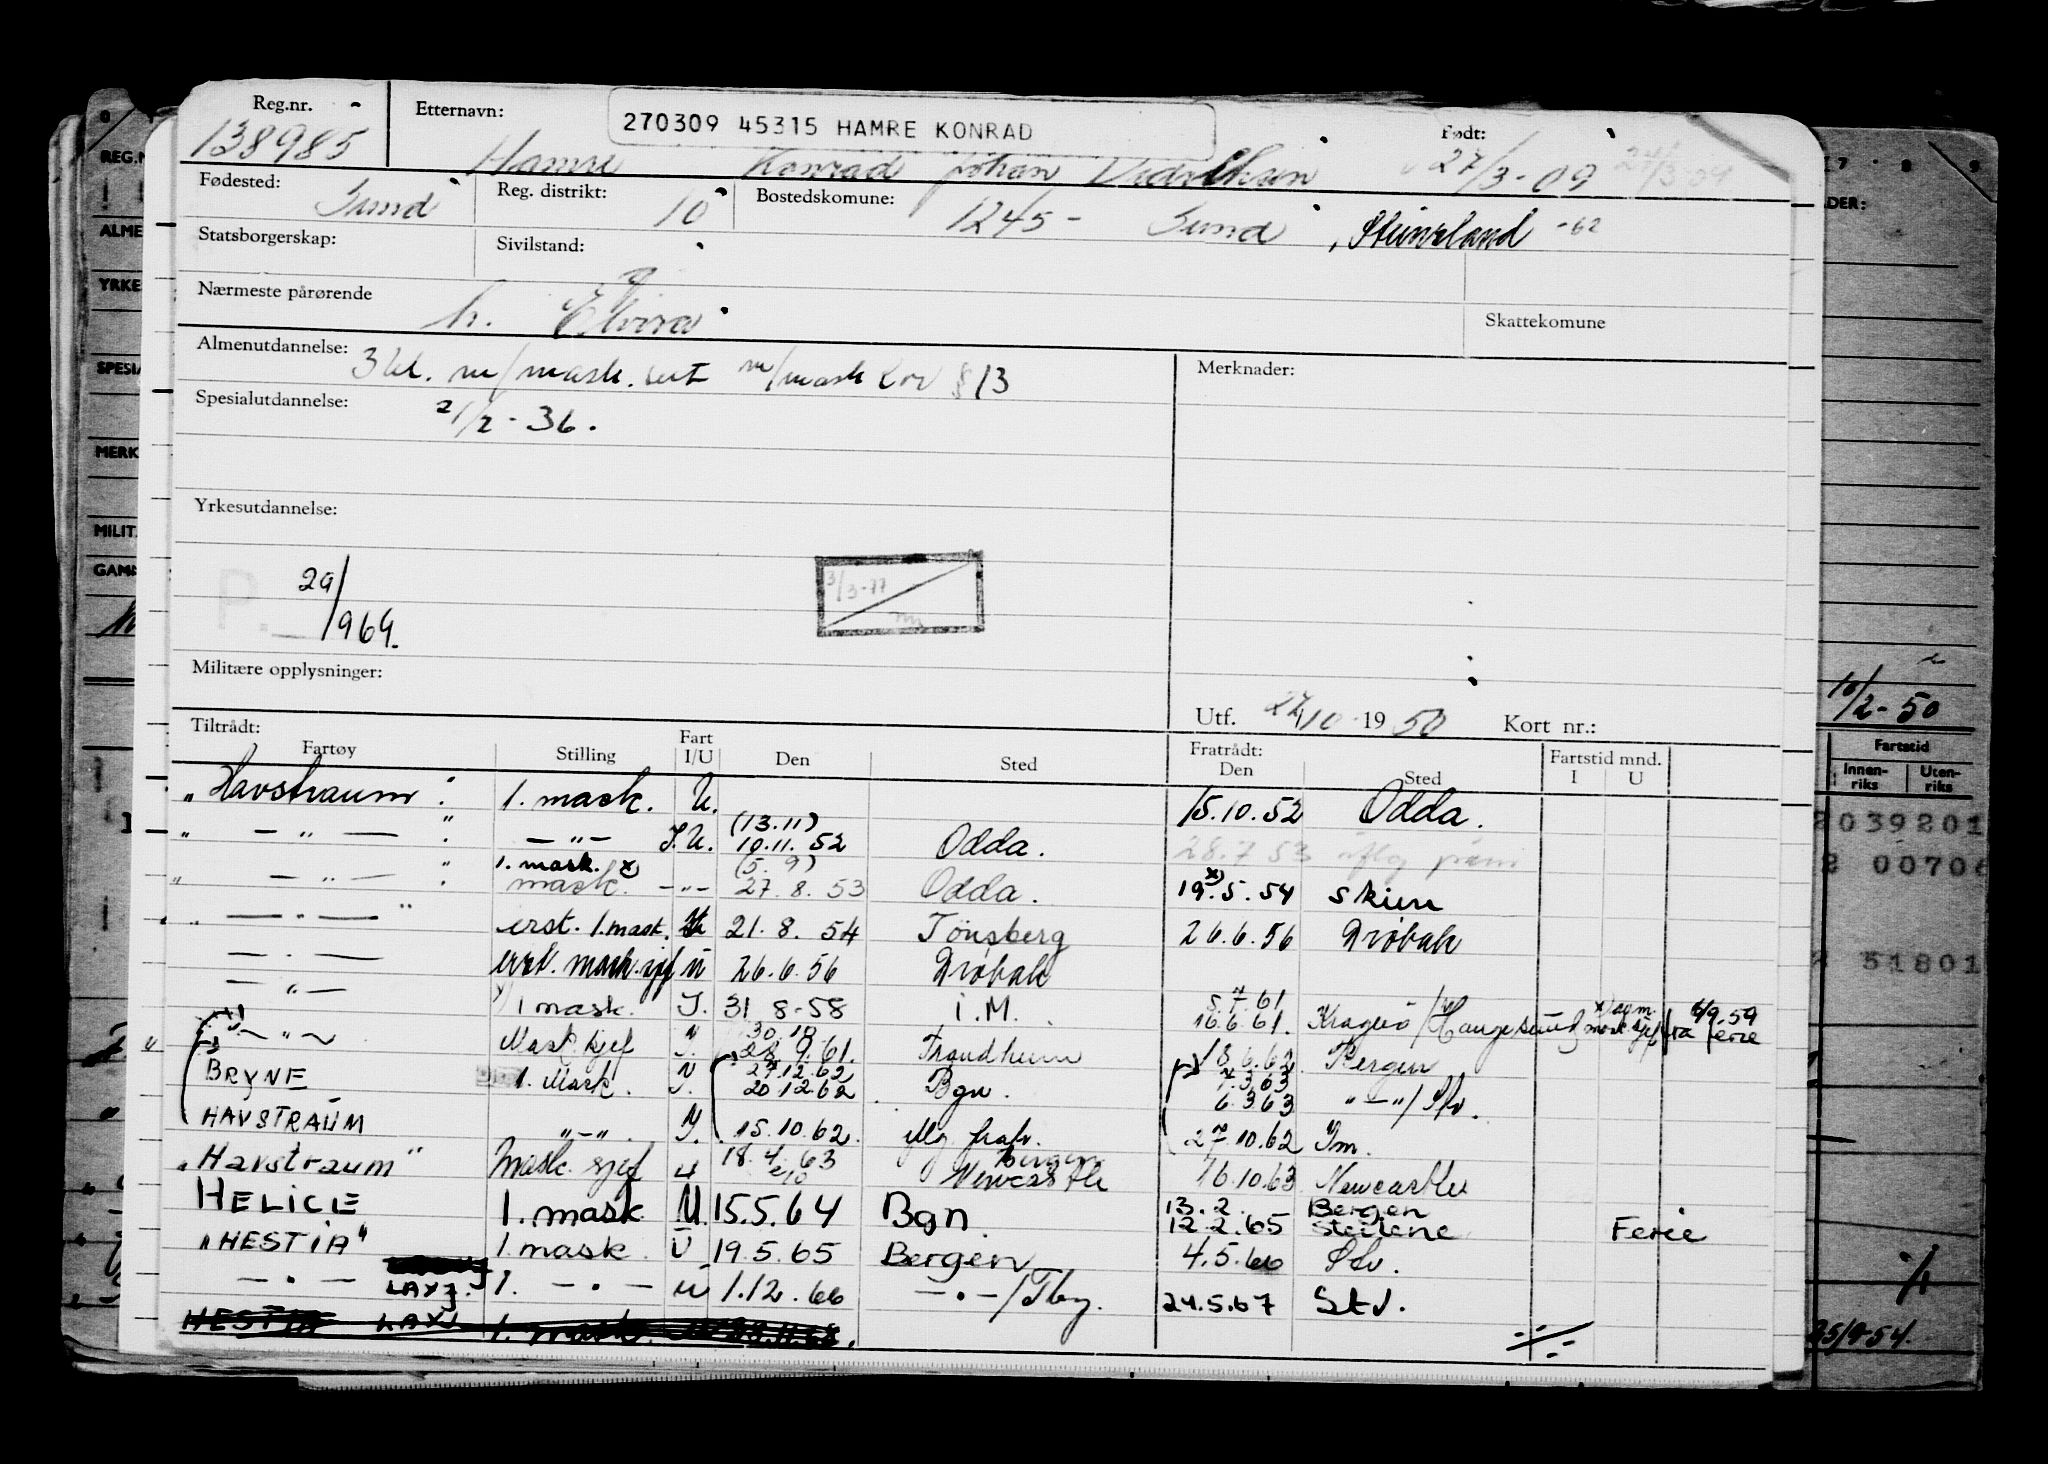 Reg.nr. Etternavn: 270309 45315 HAMRE KONRAD Født:
138985 Hamre Konrad Johan 27/3-09
Fødested: Sund Reg. distrikt: 10 Bostedskomune: 1245- Sund, Steinsland -62
Statsborgerskap: Sivilstand:
Nærmeste pårørende h. Elvira Skattekomune
Almenutdannelse: 3 kl. m/mask. sert m/mask §13 Merknader:
Spesialutdannelse: 21/2-36.
Yrkesutdannelse:
P. 29/1969.
3/3-77
Militære opplysninger:
Utf. 10 19 50 Kort nr.:
Tiltrådt: Fratrådt: Fartstid mnd.
Fartøy Stilling Fart I/U Den Sted Den Sted I U
"Havstraum" 1. mask. U. 15.10.52 Odda.
" — " — " — " — I.U. (13.11) 10.11.52 Odda. 28.7 53
" — " — " 1. mask. x) mask. — " — (5.9) 27.8.53 Odda. 19.x)5.54 Skien
" — " — " erst. 1.mask. U 21.8.54 Tönsberg 26.6.56 Drøbak
— " — erst. mask.sjef U 26.6.56 Drøbak
— " — x) 1 mask. I. 31 8-58 i.M. 5.7.61 16.6.61. Kragerø / Haugesund x) som mask.sjef fra 6/9.59 ferie
" — " — Mask sjef I. 30.10 9.61. Trondheim 18.6.62 Bergen
BRYNE 1. Mask. I. 27.12.62 20.12.62 Bgn. 7.3.63 6.3.63 " — "
HAVSTRAUM " — " I. 15.10.62. 27.10.62 Im.
"Havstraum" Mask.sjef U 18.4.63 Bergen Newcastle 16.10.63 Newcastle
HELICE 1. mask U. 15.5.64 Bgn 13.2. 12.2.65 Bergen Steilene Ferie
"HESTIA" 1. mask. U 19.5.65 Bergen 4.5.66
— " — LAXJ. 1. — " — U 1.12.66 — " — /Tbg. 24.5.67 Stv.
HESTIA LAXJ 1. mask.
REG.N
ALME
YRKE
SPESIA
MERK
MILIT
GAMM
7 8 9
ADER:
10/2-50
Fartstid
Innen-riks Uten-riks
2039201
2 00706
2 51801
25/9-54.